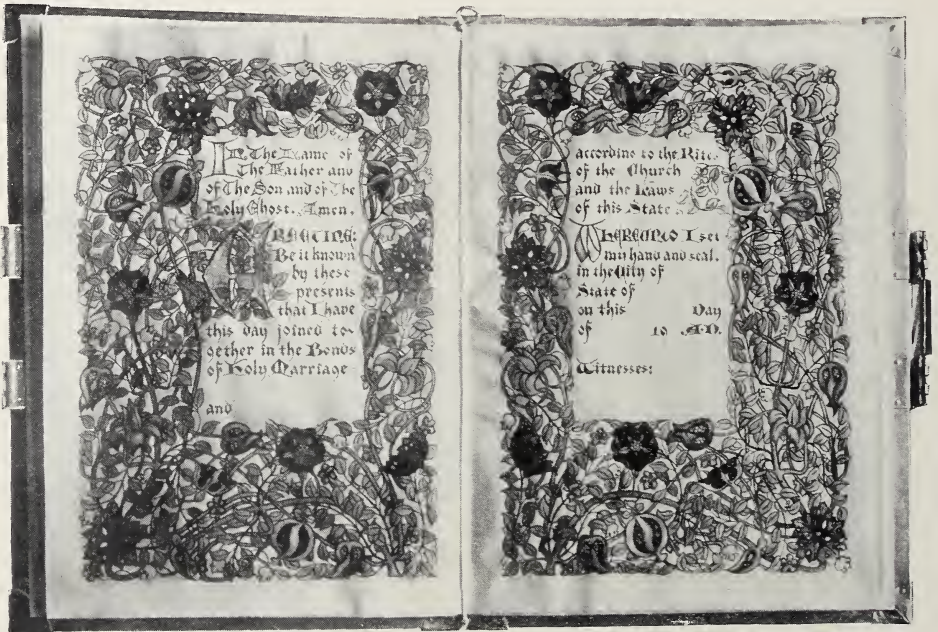 In The Name of
The Father and
of The Son and of The
Holy Ghost. Amen.
GREETING:
Be it known
by these
presents
that I have
this day joined to-
gether in the Bonds
of Holy Marriage
and
according to the Rites
of the Church
and the Laws
of this State
WHEREUNTO I set
my hand and seal,
in the City of
State of
on this Day
of 19 A.D.
Witnesses: